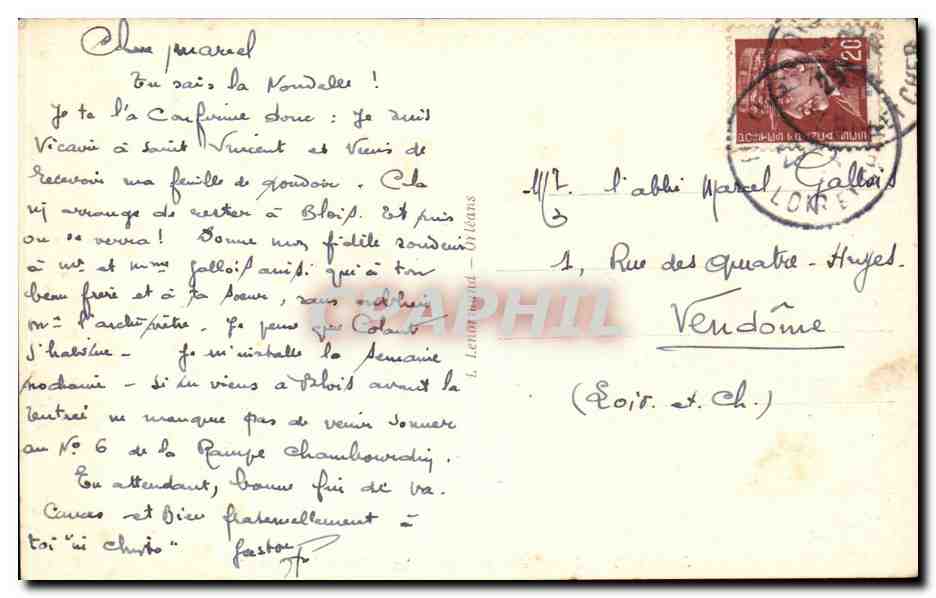 Cher Marcel
Tu sais la Nouvelle !
Je te l'a Confirme donc : Je suis
Vicaire à Saint Vincent et Viens de
recevoir ma feuille de pouvoir. Cela
m'arrange de rester à Blois. Et puis
on se verra ! Donne mon fidèle souvenir
à Mr et Mme Gallois ainsi qu'à ton
beau frère et à ta soeur, sans oublier
Mr l'archiprêtre. Je pense que Colaut
s'habitue - Je m'installe la Semaine
prochaine - Si tu viens à Blois avant la
rentrée ne manque pas de venir sonner
au No 6 de la Rampe Chambourdin.
En attendant, bonne fin de va-
cances et Bien fraternellement à
toi "in Christo" Gaston
L. Lenormand - Orléans
CPAPHIL
1F20
LOIR ET CHER
Mr. l'abbé Marcel Gallois
1, Rue des Quatre-Huyes.
Vendôme
(Loir. et. Ch.)